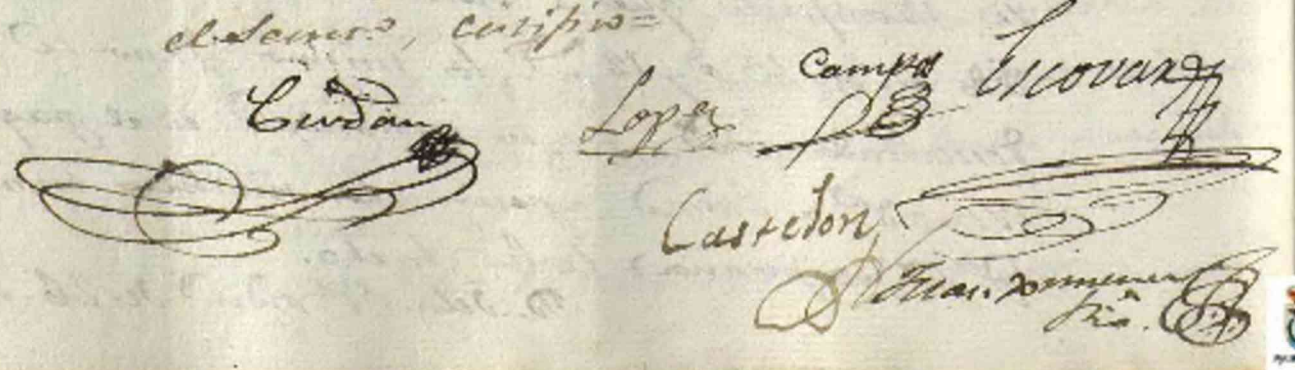 el Secret.º, certifico=
Cerdán
Lopez
Campos
Escovar
Castelon
Juan
Srio.